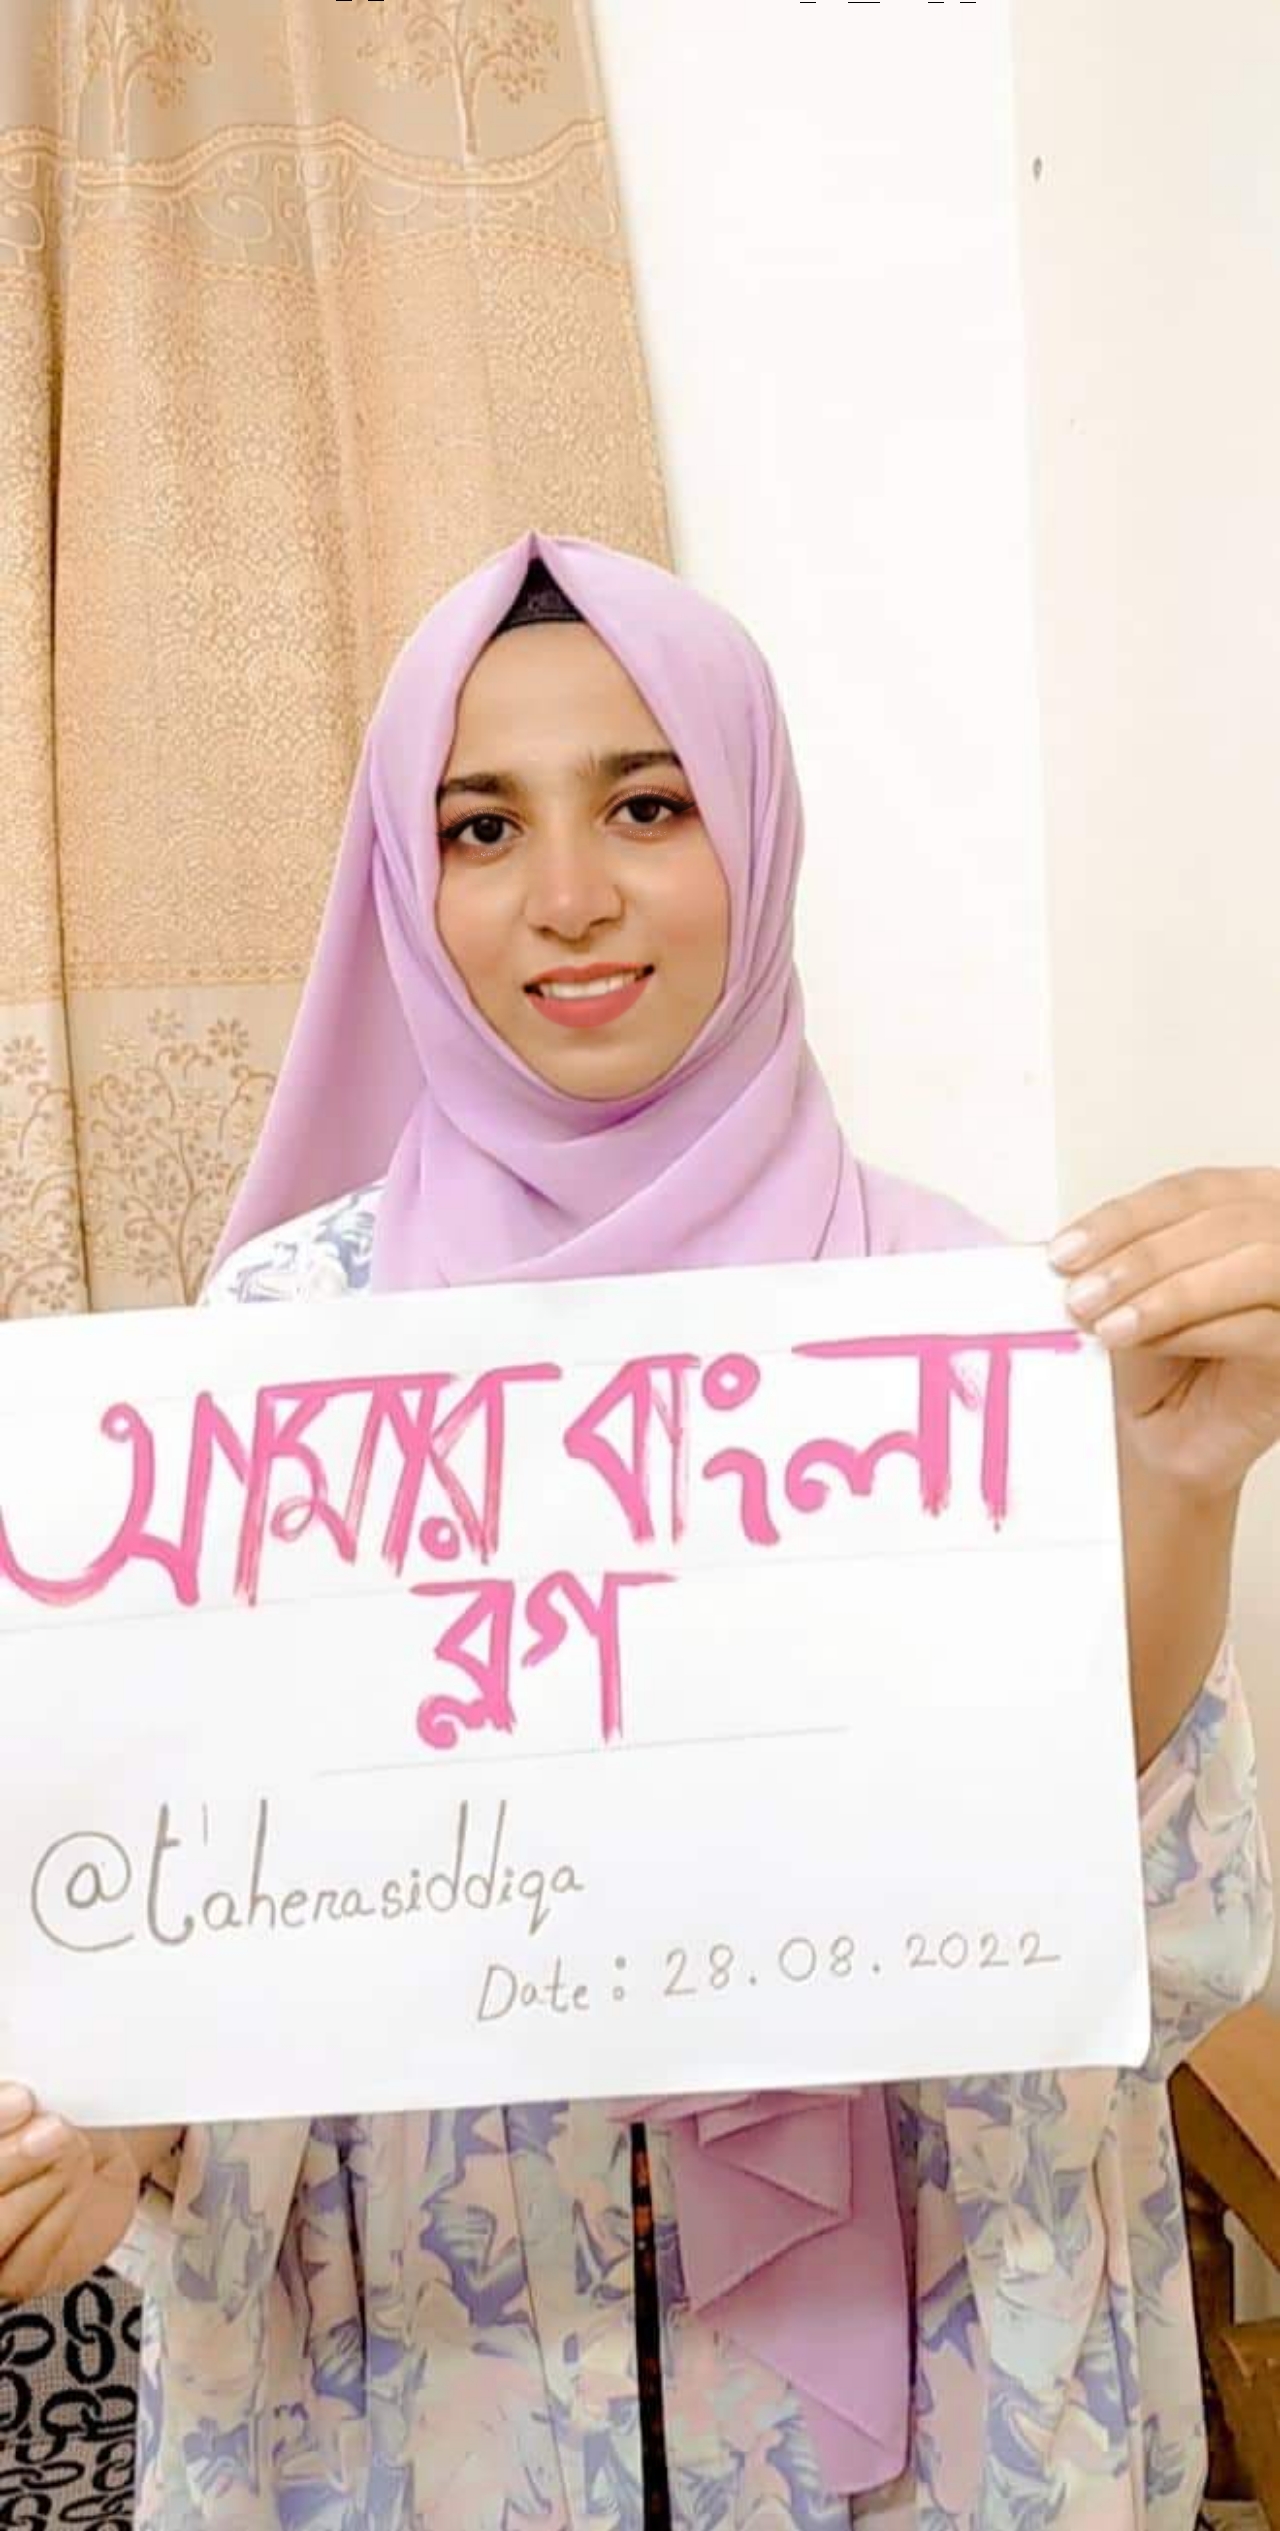 আমার বাংলা
ব্লগ
@t'aherasiddiqa
Date : 28.08.2022